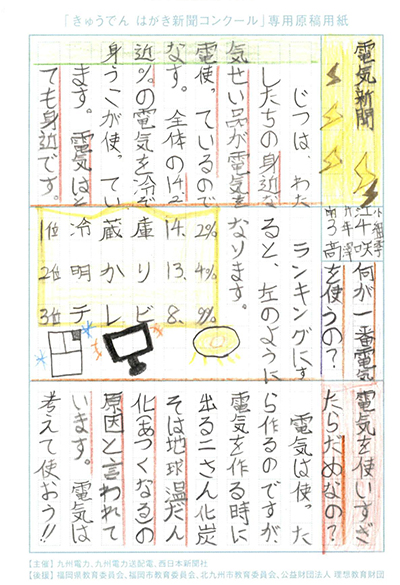 「きゅうでん はがき新聞コンクール」専用原稿用紙
電気新聞
じつは、わた
したちの身近な
気せい品が電気を
電使っているので
なす。全体の14.2
近%の電気を冷ぞ
身うこが使ってい
ます。電気はと
ても身近です。
何が一番電気
を使うの？
ランキングにす
ると、左のように
なります。
1位 冷蔵庫 14.2%
2位 明かり 13.4%
3位 テレビ 8.9%
電気を使いすぎ
たらだめなの？
電気は使った
ら作るのですが
電気を作る時に
出る二さん化炭
そは地球温だん
化(あつくなる)の
原因と言われて
います。電気は
考えて使おう!!
【主催】九州電力、九州電力送配電、西日本新聞社
【後援】福岡県教育委員会、福岡市教育委員会、北九州市教育委員会、公益財団法人 理想教育財団